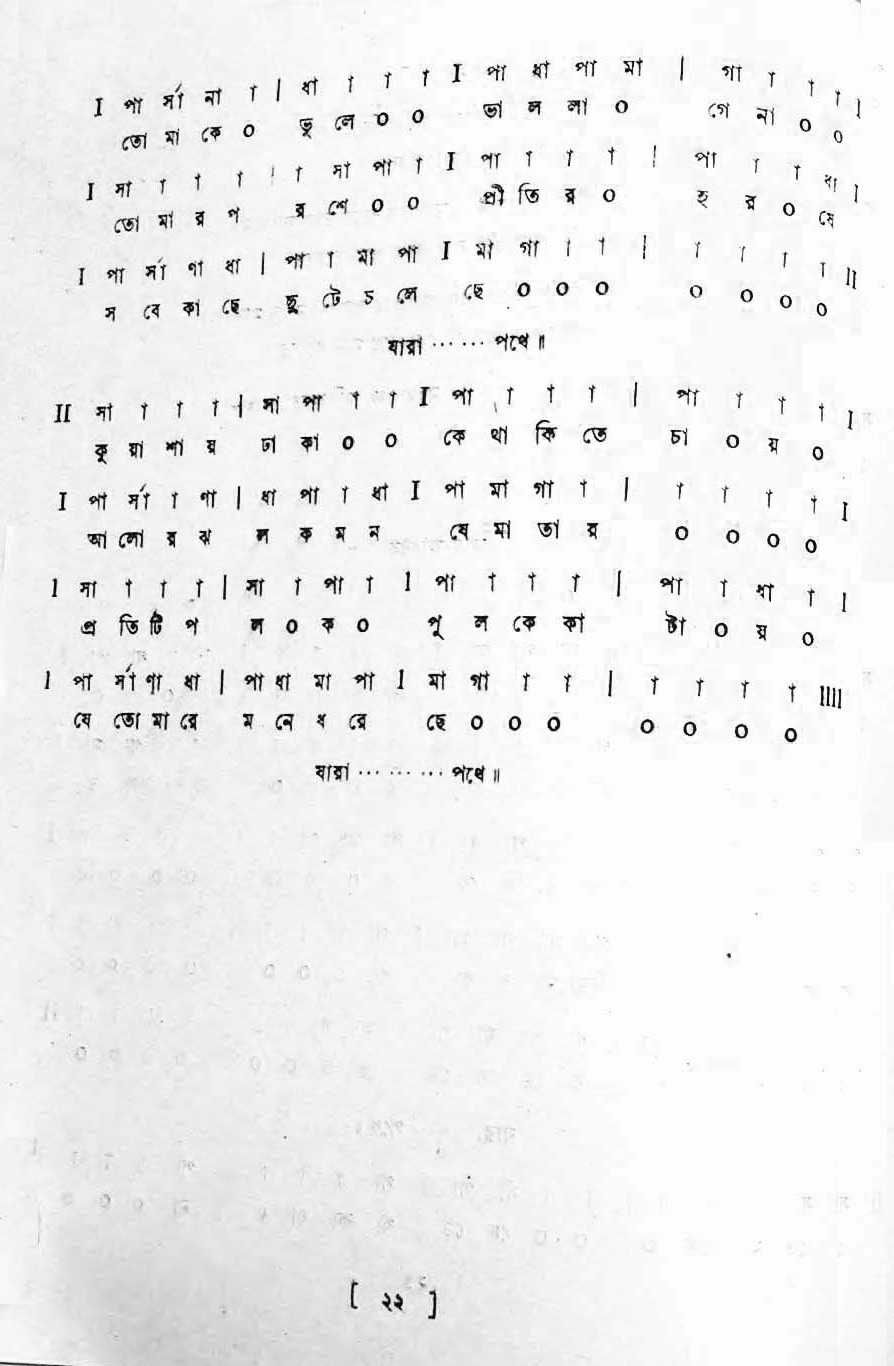 I পা র্সা না া | ধা া া া I পা ধা পা মা | গা া া া I
তো মা কে ০ ভু লে ০ ০ ভা ল লা ০ গে না ০ ০
I সা া া া | া সা পা া I পা া া া | পা া া ধা I
তো মা র প র শে ০ ০ প্রী তি র ০ হ র ০ ষে
I পা র্সা ণা ধা | পা া মা পা I মা গা া া | া া া া II
স বে কা ছে ছু টে চ লে ছে ০ ০ ০ ০ ০ ০ ০
যারা ⋯ ⋯ পথে॥
II সা া া া | সা পা া া I পা া া া | পা া া া I
কু য়া শা য় ঢা কা ০ ০ কে থা কি তে চা ০ য় ০
I পা র্সা া ণা | ধা পা া ধা I পা মা গা া | া া া া I
আ লো র ঝ ল ক ম ন যে মা তা র ০ ০ ০ ০
I সা া া া | সা া পা া I পা া া া | পা া ধা া I
প্র তি টি প ল ০ ক ০ পু ল কে কা টা ০ য় ০
I পা র্সা ণা ধা | পা ধা মা পা I মা গা া া | া া া া IIII
যে তো মা রে ম নে ধ রে ছে ০ ০ ০ ০ ০ ০ ০
যারা ⋯ ⋯ ⋯ পথে॥
[ ২২ ]